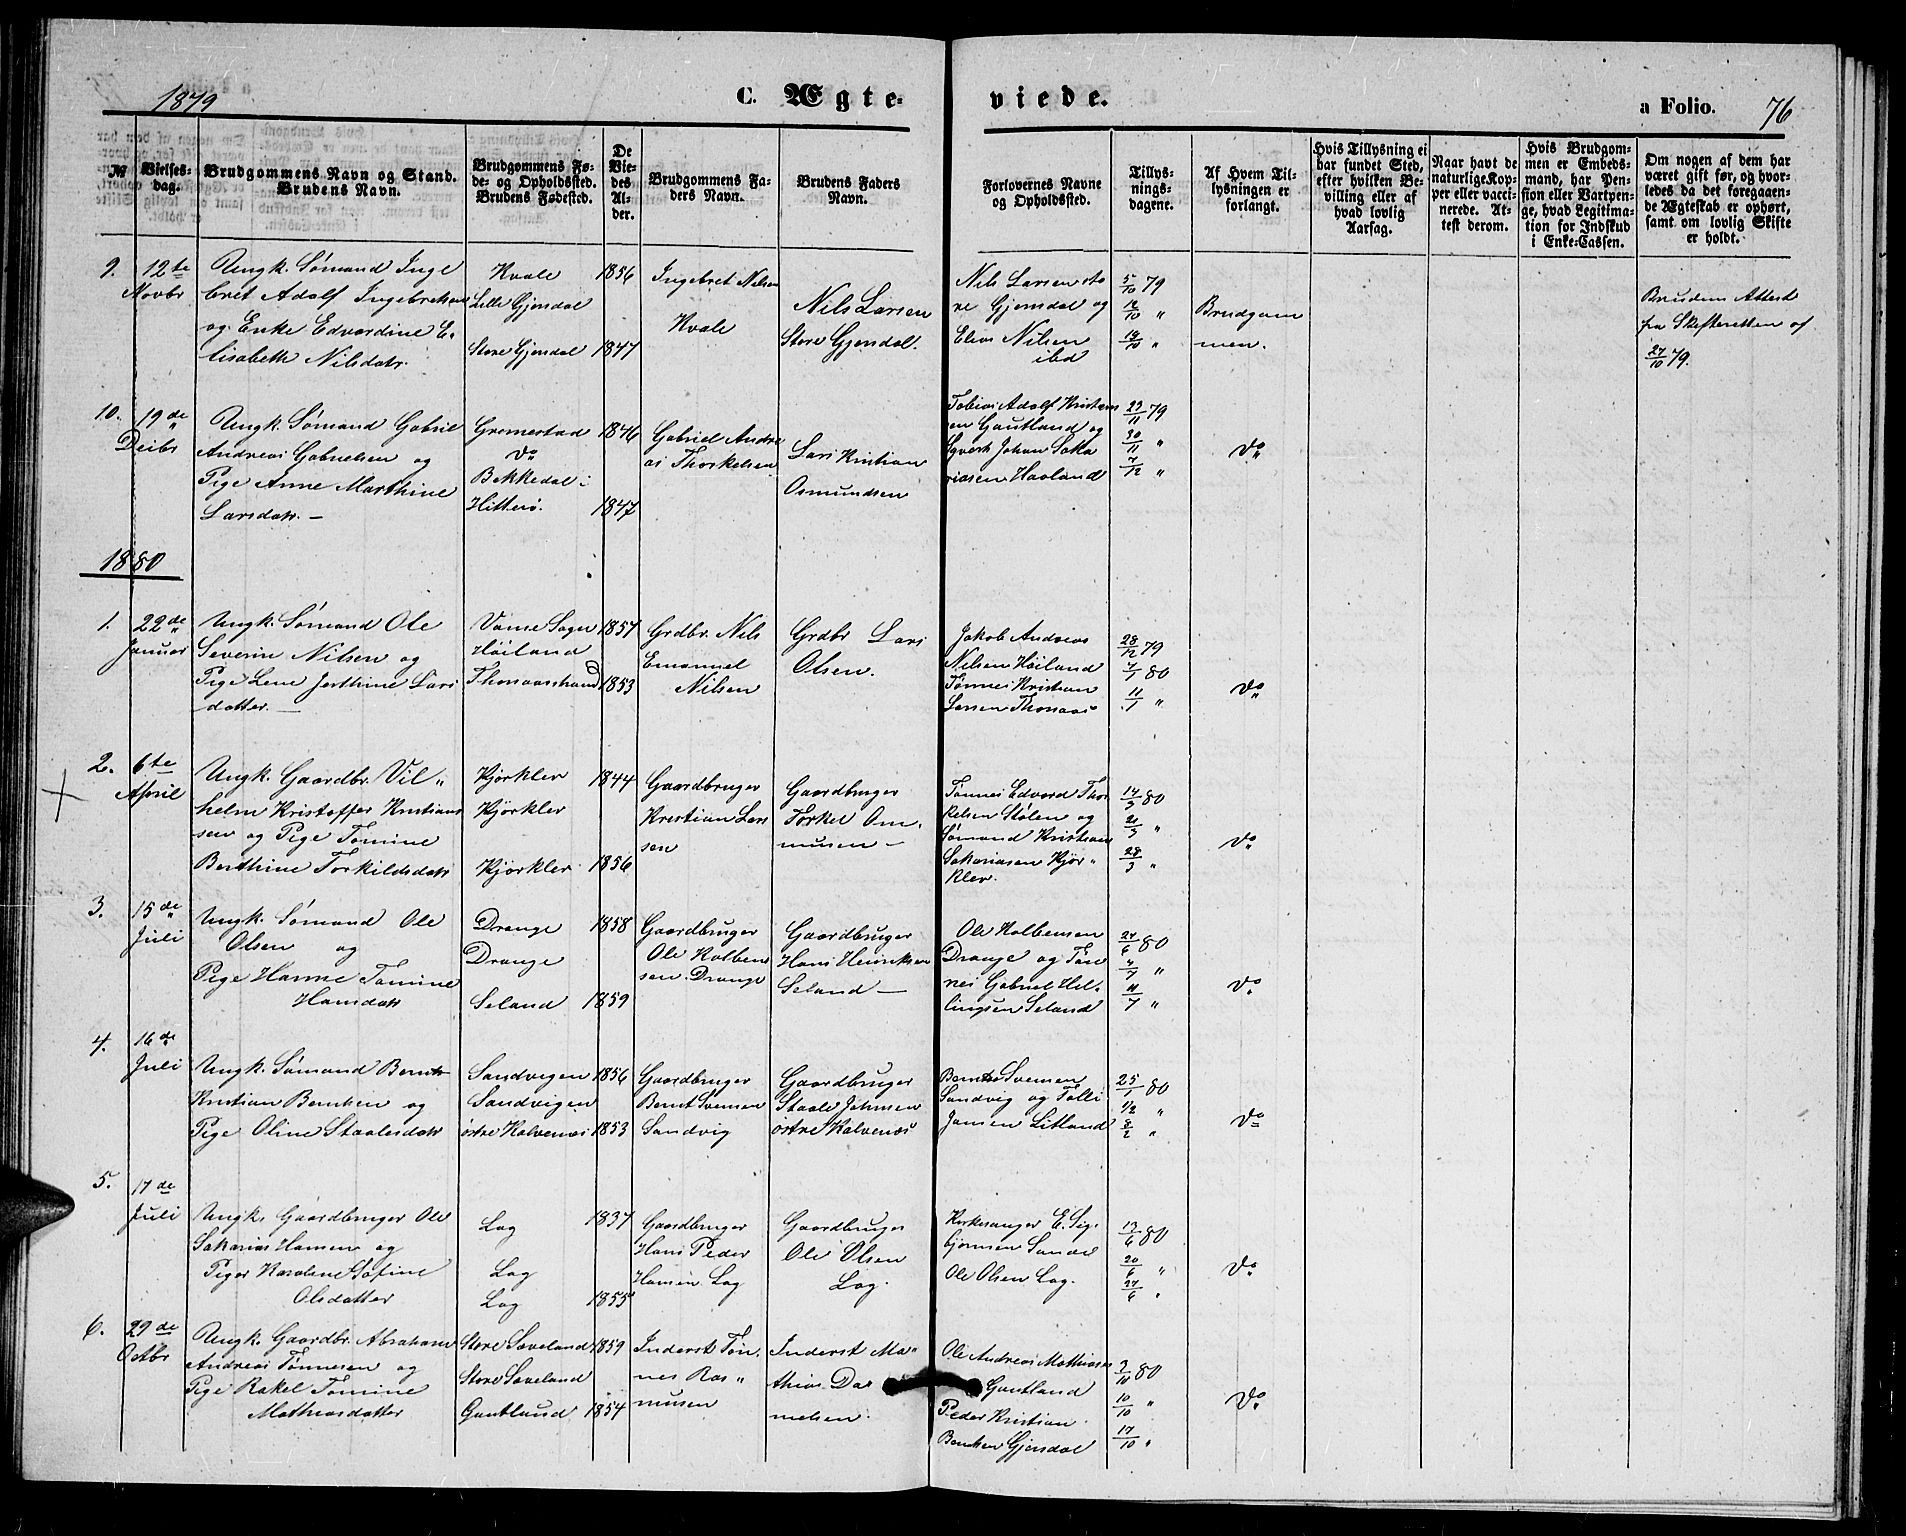 1879
C. Ægte-
viede.
a Folio. 76
№
Vielses-
dag.
Brudgommens Navn og Stand.
Brudens Navn.
Brudgommens Fø-
de- og Opholdssted.
Brudens Fødested.
De
Vie-
des
Al-
der.
Brudgommens Fa-
ders Navn.
Brudens Faders
Navn.
Forlovernes Navne
og Opholdssted.
Tillys-
nings-
dagene.
Af Hvem Til-
lysningen er
forlangt.
Hvis Tillysning ei
har fundet Sted,
efter hvilken Be-
villing eller af
hvad lovlig
Aarsag.
Naar havt de
naturlige Kop-
per eller vacci-
nerede. At-
test derom.
Hvis Brudgom-
men er Embeds-
mand, har Pen-
sion eller Vartpen-
ge, hvad Legitima-
tion for Indskud
i Enke-Cassen.
Om nogen af dem har
været gift før, og hvor-
ledes da det foregaaen-
de Ægteskab er ophørt,
samt om lovlig Skifte
er holdt.
9.
12te
Novbr
Ungk. Sømand Inge
bret Adolf Ingebretsen
og Enke Edvardine E-
lisabeth Nilsdatr.
Kvale
Lille Gjersdal
Store Gjersdal
1856
1847
Ingebret Nilsen
Kvale
Nils Larsen
Store Gjersdal.
Nils Larsen sto
re Gjersdal og
Elias Nilsen
ibd
5/10 79
12/10 "
19/10 "
Brudgom
men.
Brudens Attest
fra Skifteretten af
27/10 79.
10.
19de
Decbr
Ungk. Sømand Gabriel
Andreas Gabrielsen og
Pige Anne Marthine
Larsdatr. —
Gromestad
do
Bekkedal i
Hitterø.
1846
1847
Gabriel Andre
as Thorkelsen
Lars Kristian
Osmundsen
Tobias Adolf Kristens
en Gautland og
Syvert Johan Saka
riasen Haaland
23/11 79
30/11 "
7/12 "
do
1880
1.
22de
Januar
Ungk. Sømand Ole
Severin Nilsen og
Pige Lene Jerthine Lars
datter. —
Vanse Sogn
Høiland
Thonaasstrand
1857
1853
Grdbr. Nils
Emanuel
Nilsen
Grdbr Lars
Olsen.
Jakob Andreas
Nilsen Høiland
Tønnes Kristian
Larsen Thonaas
28/12 79
4/1 80
11/1 "
do
2.
6te
April
Ungk. Gaardbr. Vil-
helm Kristoffer Kristians
sen og Pige Tomine
Berthine Torkildsdatr
Kjørklev
Kjørklev
Kjørklev
1844
1856
Gaardbruger
Kristian Lars
sen
Gaardbruger
Torkel Om-
musen —
Tønnes Edvard Thor
kelsen Stølen og
Sømand Kristian
Sakariasen Kjør-
klev.
14/3 80
21/3 "
28/3 "
do
3.
15de
Juli
Ungk. Sømand Ole
Olsen og
Pige Hanne Tomine
Hansdatr
Drange
Drange
Seland
1858
1859
Gaardbruger
Ole Kolbens
sen Drange
Gaardbruger
Hans Henriksen
Seland —
Ole Kolbensen
Drange og Tøn
nes Gabriel Hel-
lingsen Seland
27/6 80
4/7 "
11/7 "
do
4.
16de
Juli
Ungk. Sømand Bernt
Kristian Berntsen og
Pige Oline Staalesdatr
Sandvigen
Sandvigen
østre Kalvenæs
1856
1853
Gaardbruger
Bernt Svensen
Sandvig
Gaardbruger
Staale Johnsen
østre Kalvenæs
Bernt Svensen
Sandvig og Tolli
Jansen Litland
25/1 80
1/2 "
8/2 "
do
5.
17de
Juli
Ungk. Gaardbruger Ole
Sakarias Hansen og
Pige Karolene Sofine
Olsdatter
Log
Log
Log
1837
1855
Gaardbruger
Hans Peder
Hansen Log
Gaardbruger
Ole Olsen
Log.
Kirkesanger E. Sig-
bjørnsen Sande
Ole Olsen Log.
13/6 80
20/6 "
27/6 "
do
6.
29de
Octbr
Ungk. Gaardbr. Abraham
Andreas Tønnesen og
Pige Rakel Tomine
Mathiasdatter
Store Søveland
Store Søveland
Gautland
1859
1854
Inderst Tøn-
nes Ras-
musen
Inderst Ma-
thias Da
nielsen.
Ole Andreas Mathiassen
Gautland
Peder Kristian
Berntsen Gjersdal
3/10 80
10/10 "
17/10 "
do